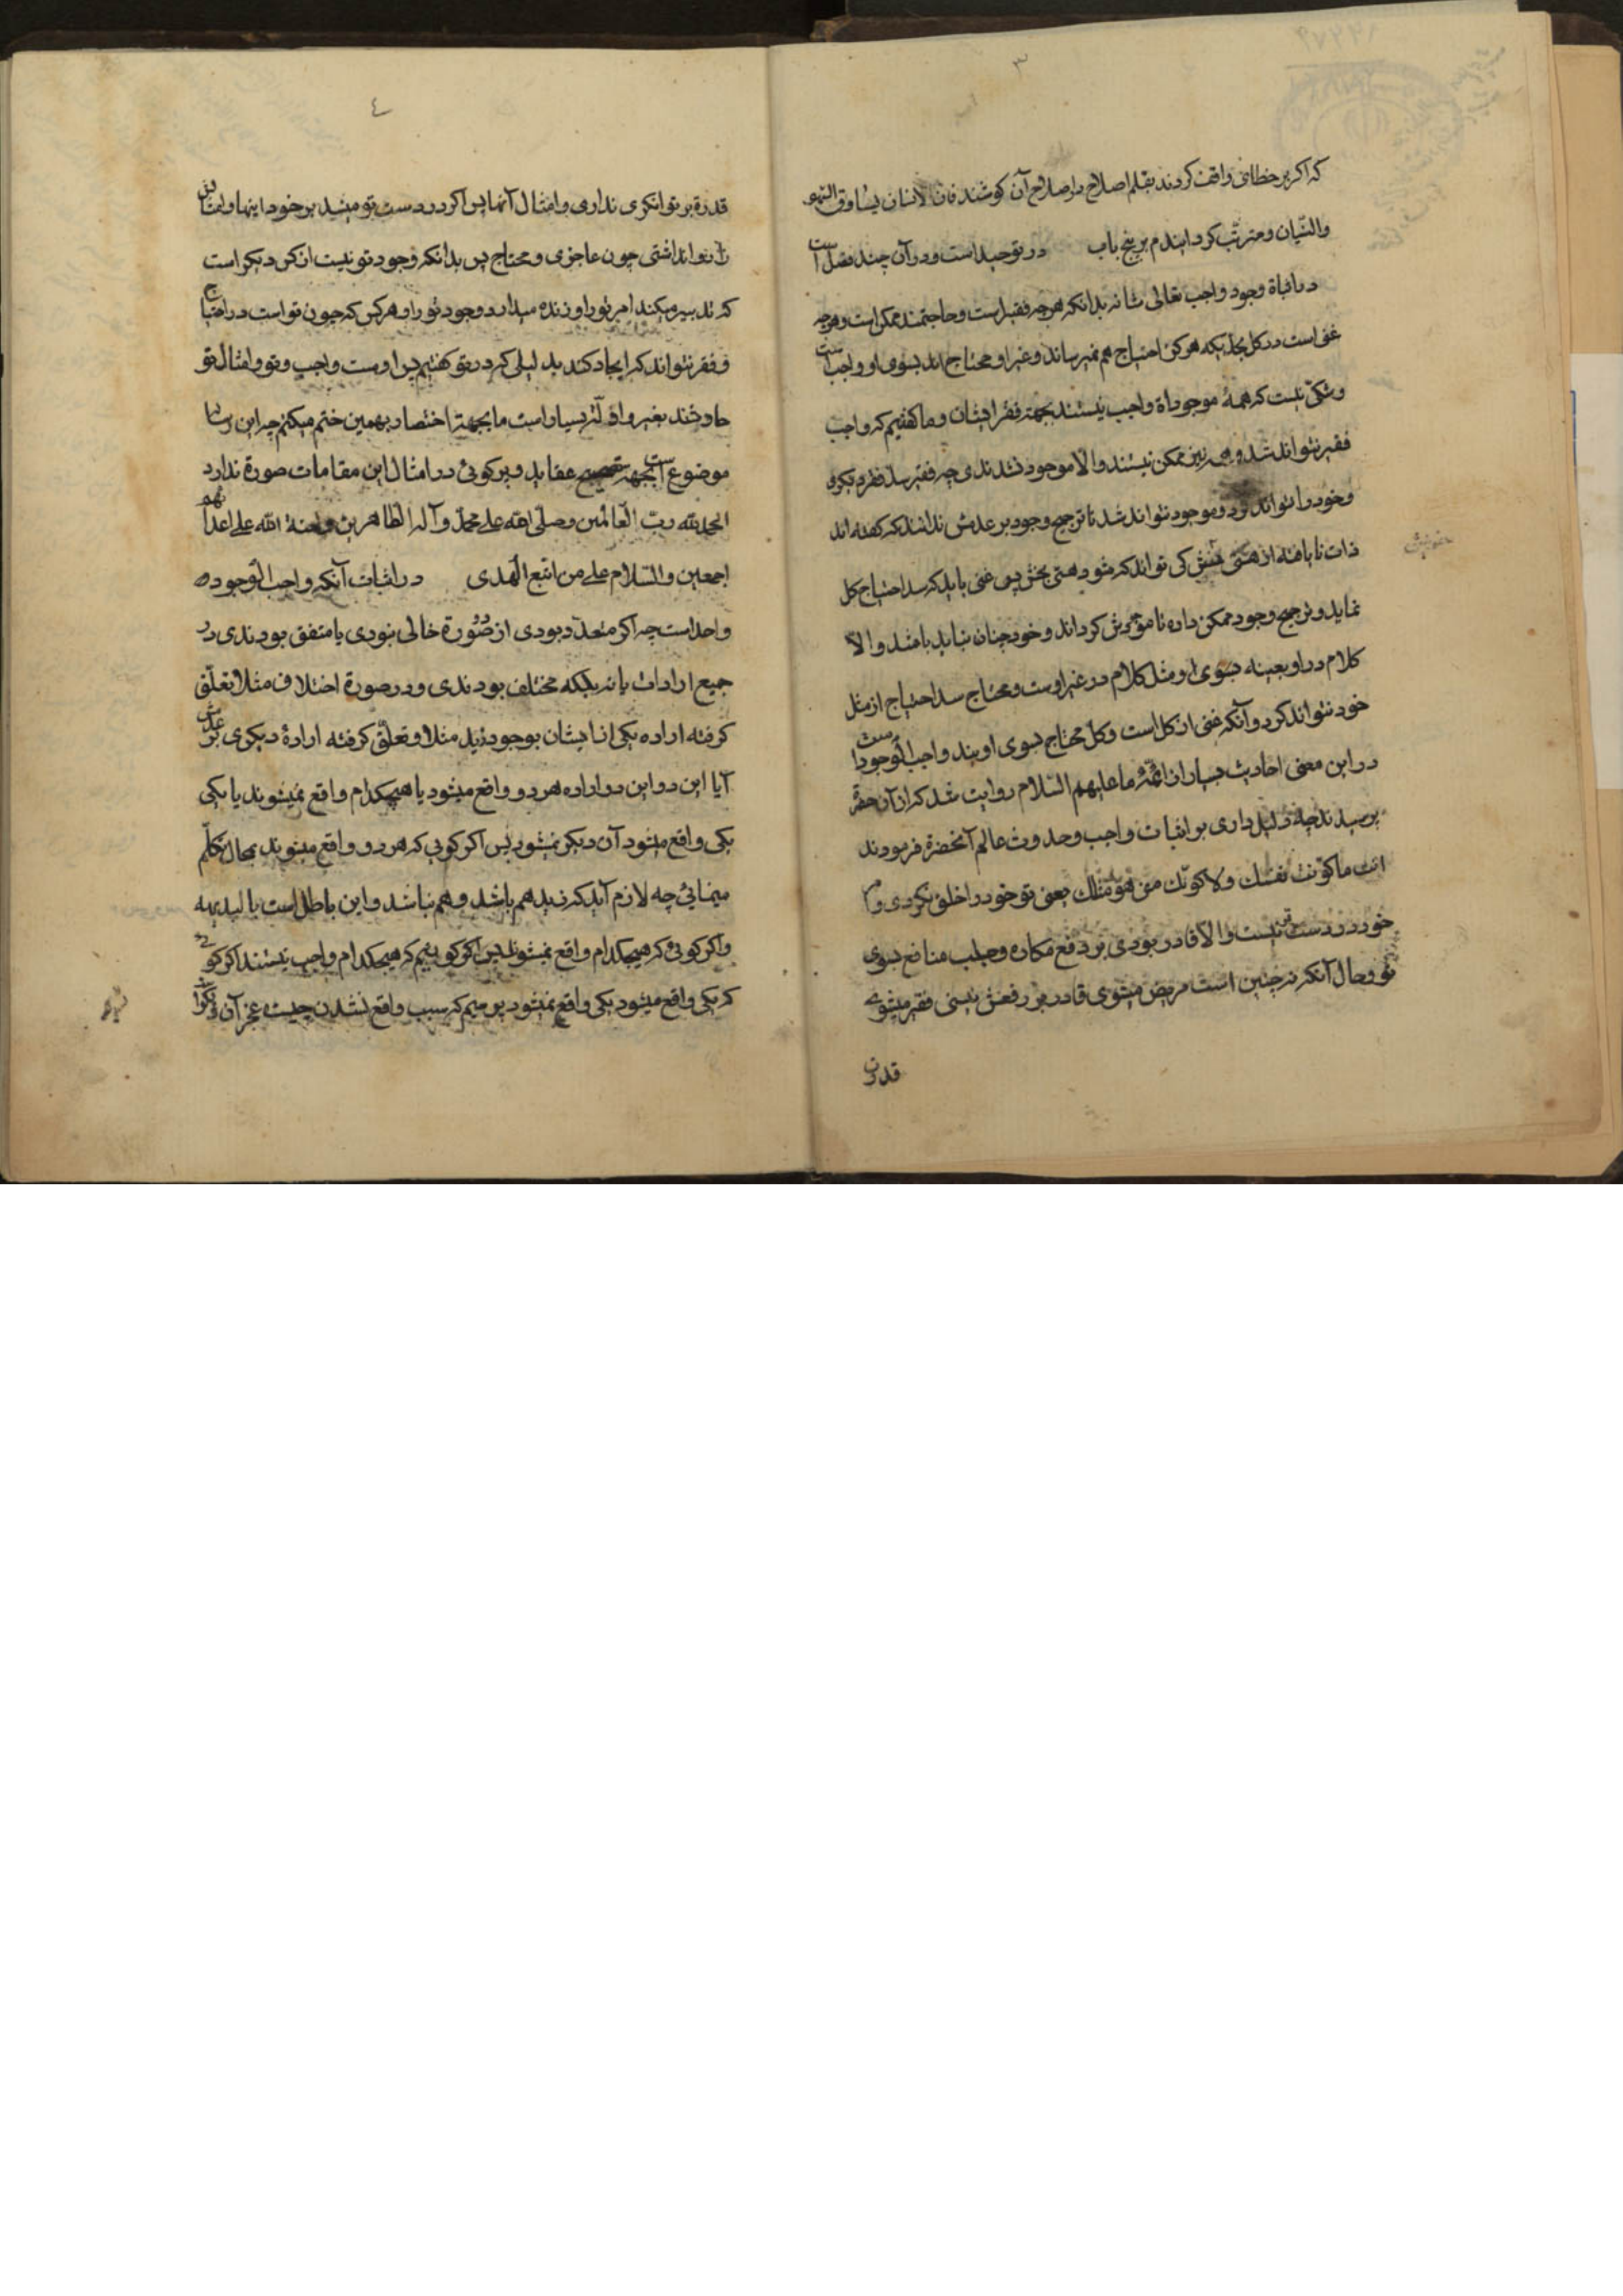 ٣
که اکر بر خطائی واقف کردند بقلم اصلاح در اصلاح آن کوشند فان الانسان یساوق السهو
والنسیان و مترتب کردانیدم بر پنج باب در توحید است و در آن چند فصل است
در اثباة وجود واجب تعالی شانه بدانکه هر چه فقیر است و حاجتمند ممکن است و هر چه
غنی است در کل بحدیکه هرکز احتیاج بهم نمیرساند و غیر او محتاج اند بسوی او واجب است
و شکی نیست که همهٔ موجوداة واجب نیستند بجهة فقر ایشان و ما کفتیم که واجب
فقیر نتواند شد و همه نیز ممکن نیستند والا موجود نشدندی چه فقیر سد فقر دیکری
و خود را نتواند و موجود نتواند شد تا ترجیح وجود بر عدمش ندهند که کفته اند
ذات نایافته از هستی بخش کی تواند که شود هستی بخش پس غنی باید که سد احتیاج کل
نماید و ترجیح وجود ممکن داده تا موجودش کرداند و خود چنان نباید باشد والا
کلام در او بعینه بسوی او مثل کلام در غیر اوست و محتاج سد احتیاج از مثل
خود نتواند کرد و آنکه غنی از کل است و کل محتاج بسوی اویند واجب الوجود است
در این معنی احادیث بسیار از ائمهٔ ما علیهم السلام روایت شد که از آن حضرة
پرسیدند چه دلیل داری بر اثبات واجب و حدوث عالم آنحضرة فرمودند
انت ما کونت نفسک ولا کونک من هو مثلک یعنی تو خود را خلق نکردی و
خود در دستت نیست والا قادر بودی بر دفع مکاره و جلب منافع بسوی
تو و حال آنکه نه چنین است مریض میشوی قادر بر رفعش نیستی فقیر میشوی
قدرة
٤
قدرة بر توانکری نداری و امثال آنها پس اکر در دست تو میشد بر خود اینها و امثالش
را نتوانداشتی چون عاجزی و محتاج پس بدانکه وجود تو نیست از کس دیکر است
که تدبیر میکند امر تو را و زنده میدارد وجود تو را و هر کس که چون تو است در احتیاج
و فقر نتواند که ایجاد کند بدلیلی که در تو کفتیم پس اوست واجب و تو و امثال تو
حادثند بغیر و ادله بسیار است ما بجهة اختصار بهمین ختم میکنم چه این رساله
موضوع است بجهة تصحیح عقاید و پرکوئی در امثال این مقامات صورة ندارد
الحمد لله رب العالمین وصلی الله علی محمد و آله الطاهرین و لعنة الله علی اعدائهم
اجمعین والسلام علی من اتبع الهدی در اثبات آنکه واجب الوجود
واحد است چه اکر متعدد بودی از دو صورة خالی نبودی یا متفق بودندی در
جمیع ارادات یا نه بلکه مختلف بودندی و در صورة اختلاف مثلا تعلق
کرفته اراده یکی از ایشان بوجود زید مثلا و تعلق کرفته ارادهٔ دیکری بر عدمش
آیا این دو این دو اراده هر دو واقع میشود یا هیچکدام واقع نمیشوند یا یکی
یکی واقع میشود آن دیکر نمیشود پس اکر کویی که هر دو واقع میشوند بمحال تکلم
مینمائی چه لازم آید که زید هم باشد و هم نباشد و این باطل است بالبدیهه
و اکر کوئی که هیچکدام واقع نمیشوند پس اکر کویم که هیچکدام واجب نیستند اکر کوئی
که یکی واقع میشود یکی واقع نمیشود پرسیم که سبب واقع نشدن چیست عجز آن دیکر